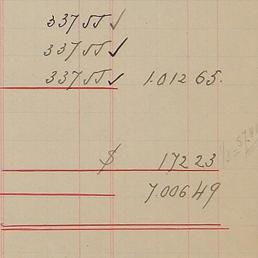 337 55 ✓
337 55 ✓
337 55 ✓ 1.012 65.
$ 172 23
7.006.49